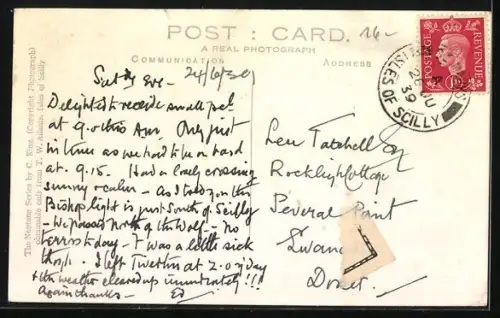 POST CARD.
16-
A REAL PHOTOGRAPH
COMMUNICATION
ADDRESS
Satdy Eve- 24/6/39
Delighted to receive small pcl
at 9. o this Am. Only just
in time as we had to be on board
at. 9.15. Had a lovely crossing
sunny & calm - As I told you the
Bishop light is just South of Scilly
- We passed North of the Wolf - no
terrors today - T was a little sick
tho - I left Twerton at 2.0 yday
& the weather cleared up immediately!!!
Again thanks - Ed
Len Tatchell Esq
Rockleigh Cottage
Peveril Point
Swana
Dorset.
POSTAGE
REVENUE
ISLES OF SCILLY
26 JU
39
The Neptune Series by C. King. (Copyright Photograph)
obtainable only from T. W. Isles of Scilly